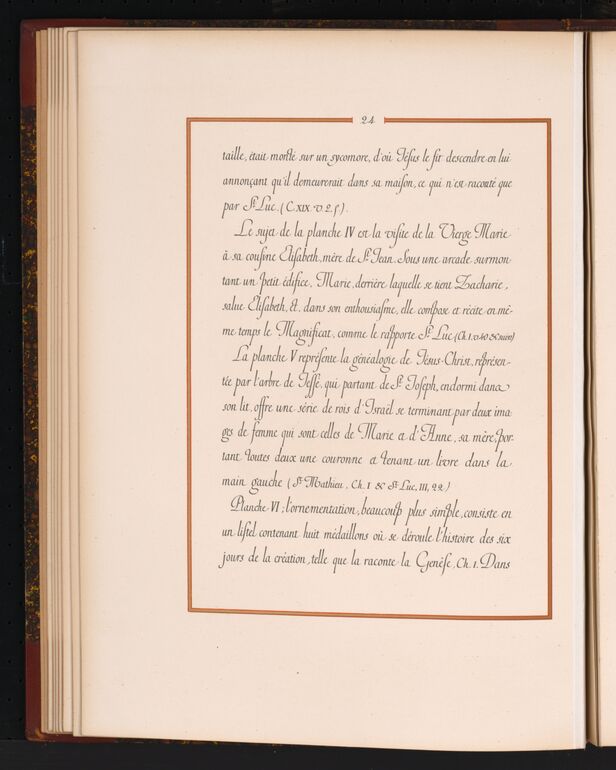 24
taille, était monté sur un sycomore, d'où Jésus le fit descendre en lui
annonçant qu'il demeurerait dans sa maison, ce qui n'est raconté que
par St Luc. (C. XIX. v. 2. 5).
Le sujet de la planche IV est la visite de la Vierge Marie
à sa cousine Elisabeth, mère de St Jean. Sous une arcade surmon
tant un petit édifice, Marie, derrière laquelle se tient Zacharie,
salue Elisabeth, &, dans son enthousiasme, elle compose et récite en mê-
me temps le Magnificat, comme le rapporte St Luc (Ch. I. v. 40 & suiv)
La planche V représente la généalogie de Jésus-Christ, représen-
tée par l'arbre de Jessé, qui partant de St Joseph, endormi dans
son lit, offre une série de rois d'Israël se terminant par deux ima
ges de femme qui sont celles de Marie et d'Anne, sa mère, por-
tant toutes deux une couronne et tenant un livre dans la
main gauche (St Mathieu, Ch. I & St Luc, III, 22)
Planche VI; l'ornementation, beaucoup plus simple, consiste en
un listel contenant huit médaillons où se déroule l'histoire des six
jours de la création, telle que la raconte la Genèse, Ch. I. Dans